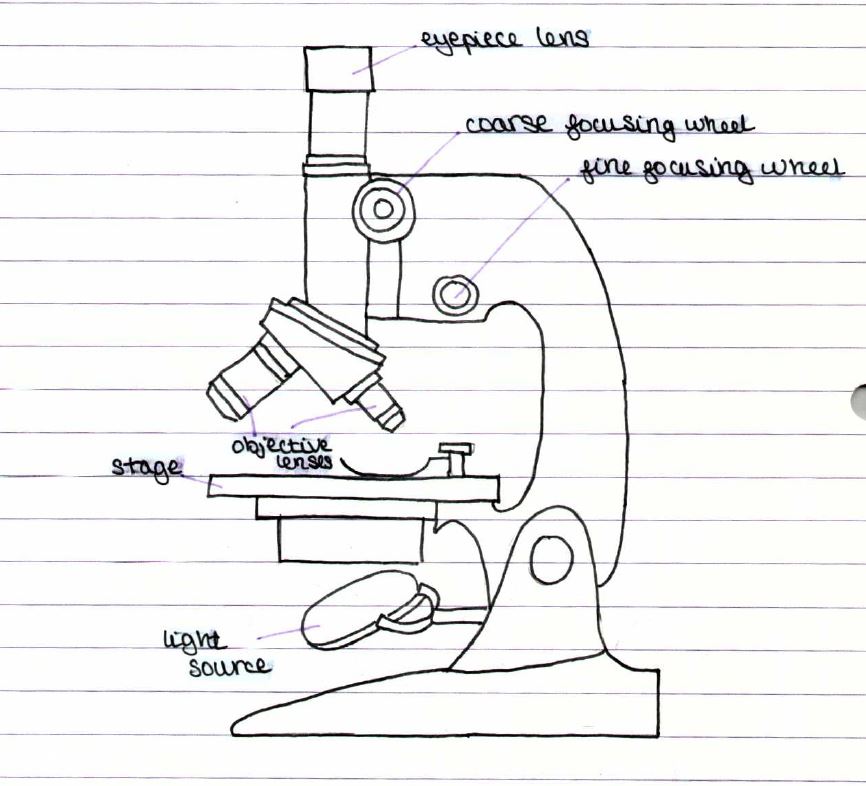 eyepiece lens
coarse focusing wheel
fine focusing wheel
objective
lenses
stage
light
source